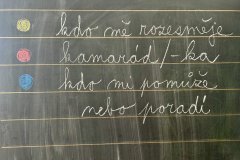 kdo mě rozesměje
kamarád/-ka
kdo mi pomůže
nebo poradí